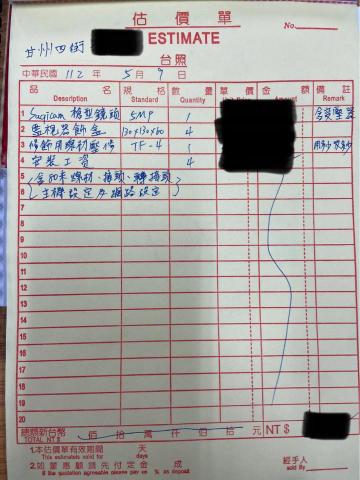 估價單
ESTIMATE
No.
甘州四街
台照
中華民國 112 年 5 月 9 日
品名 規格 數量 單價 金額 備註
Description Standard Quantity Amount Remark
1 Sagicam 槍型鏡頭 5MP 1 含變壓器
2 監視器飾盒 130x130x60 4
3 修飾用線材壓條 TF-4 1
4 安裝工資 4
5 (含80米線材、接頭、轉接頭
6 主機設定及網路設定
7
8
9
10
11
12
13
14
15
16
17
18
19
20
總額新台幣 佰 拾 萬 仟 佰 拾 元 NT$
TOTAL NT $
1.本估價單有效期間 天
This estimate is valid for days
2.如蒙惠顧請先付定金 成
If the quotation agreeable please pay us % as deposit
經手人
sold By